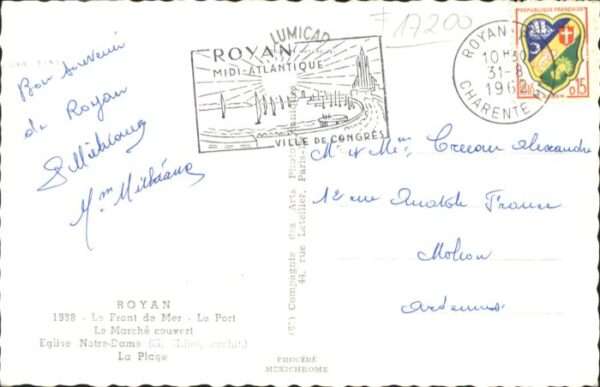 17200
LUMICAP
ROYAN
MIDI-ATLANTIQUE
VILLE DE CONGRÈS
ROYAN
10 H 30
31-8
196
CHARENTE
REPUBLIQUE FRANÇAISE
0,15
Bon souvenir
de Royan
Mr & Mme Alexandre
12 rue Anatole France
Mohon
Ardennes
ROYAN
1938 - Le Front de Mer - Le Port
Le Marché couvert
Eglise Notre-Dame
La Plage
(C") Compagnie des Arts
44, rue Letellier, Paris
PROCÉDÉ
MEXICHROME